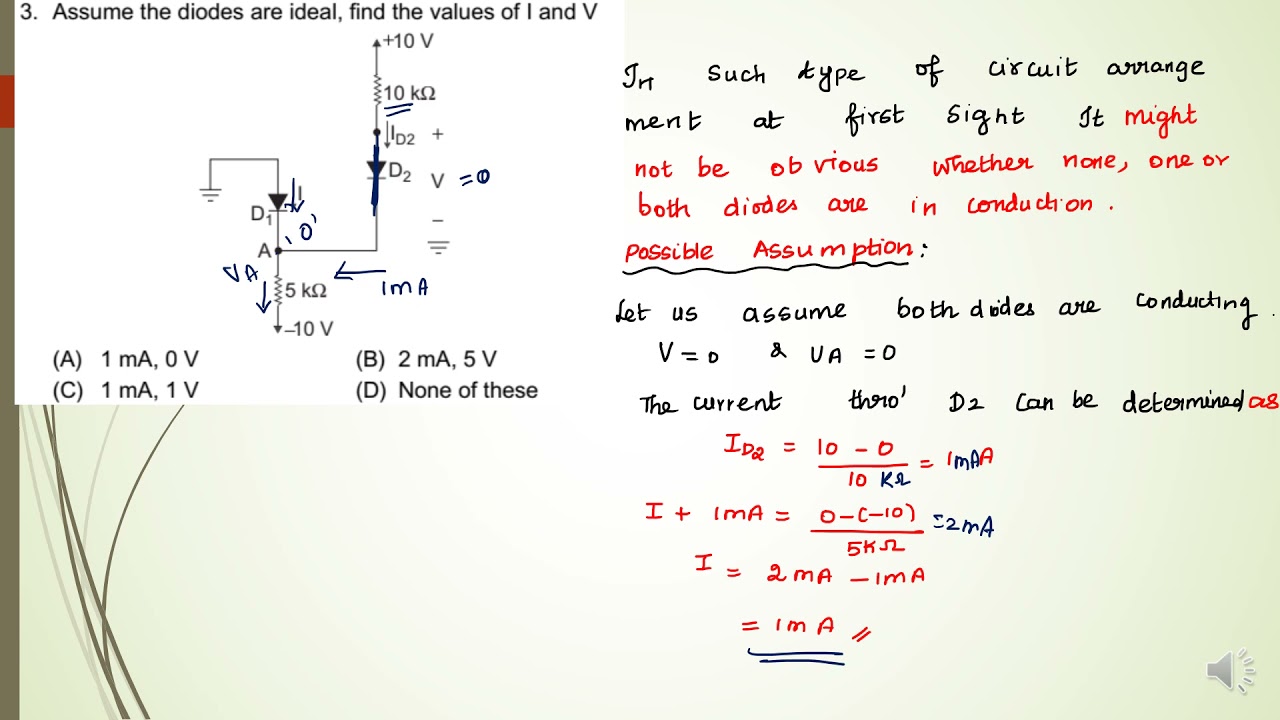 3. Assume the diodes are ideal, find the values of I and V
+10 V
10 kΩ
I_D2 +
D2 V =0
–
I
D1
A 0
VA
5 kΩ
1mA
–10 V
(A) 1 mA, 0 V (B) 2 mA, 5 V
(C) 1 mA, 1 V (D) None of these
In such type of circuit arrange
ment at first sight It might
not be obvious whether none, one or
both diodes are in conduction.
Possible Assumption:
Let us assume both diodes are conducting.
V = 0 & VA = 0
The current thro' D2 can be determined as
I_D2 = 10 - 0 / 10 KΩ = 1mAA
I + 1mA = 0-(-10) / 5KΩ =2mA
I = 2mA - 1mA
= 1mA //